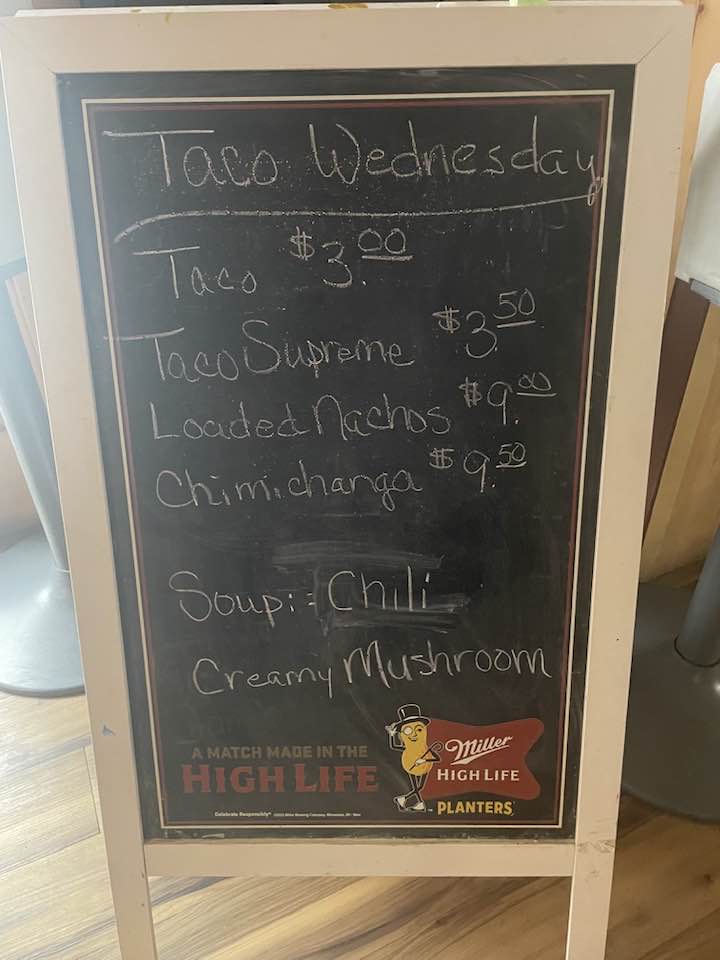 Taco Wednesday
Taco $3.00
Taco Supreme $3.50
Loaded Nachos $9.00
Chimichanga $9.50
Soup: Chili
Creamy Mushroom
A MATCH MADE IN THE
HIGH LIFE
Miller
HIGH LIFE
PLANTERS
Celebrate Responsibly